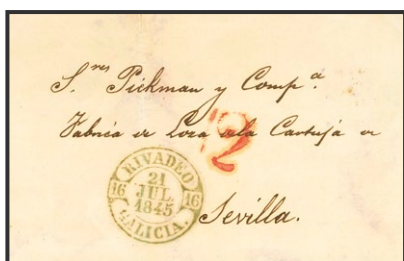 S.res Pickman y Comp.a
Fabrica de Loza de la Cartuja de
2
RIVADEO
16 21 16
JUL
1845
GALICIA.
Sevilla.